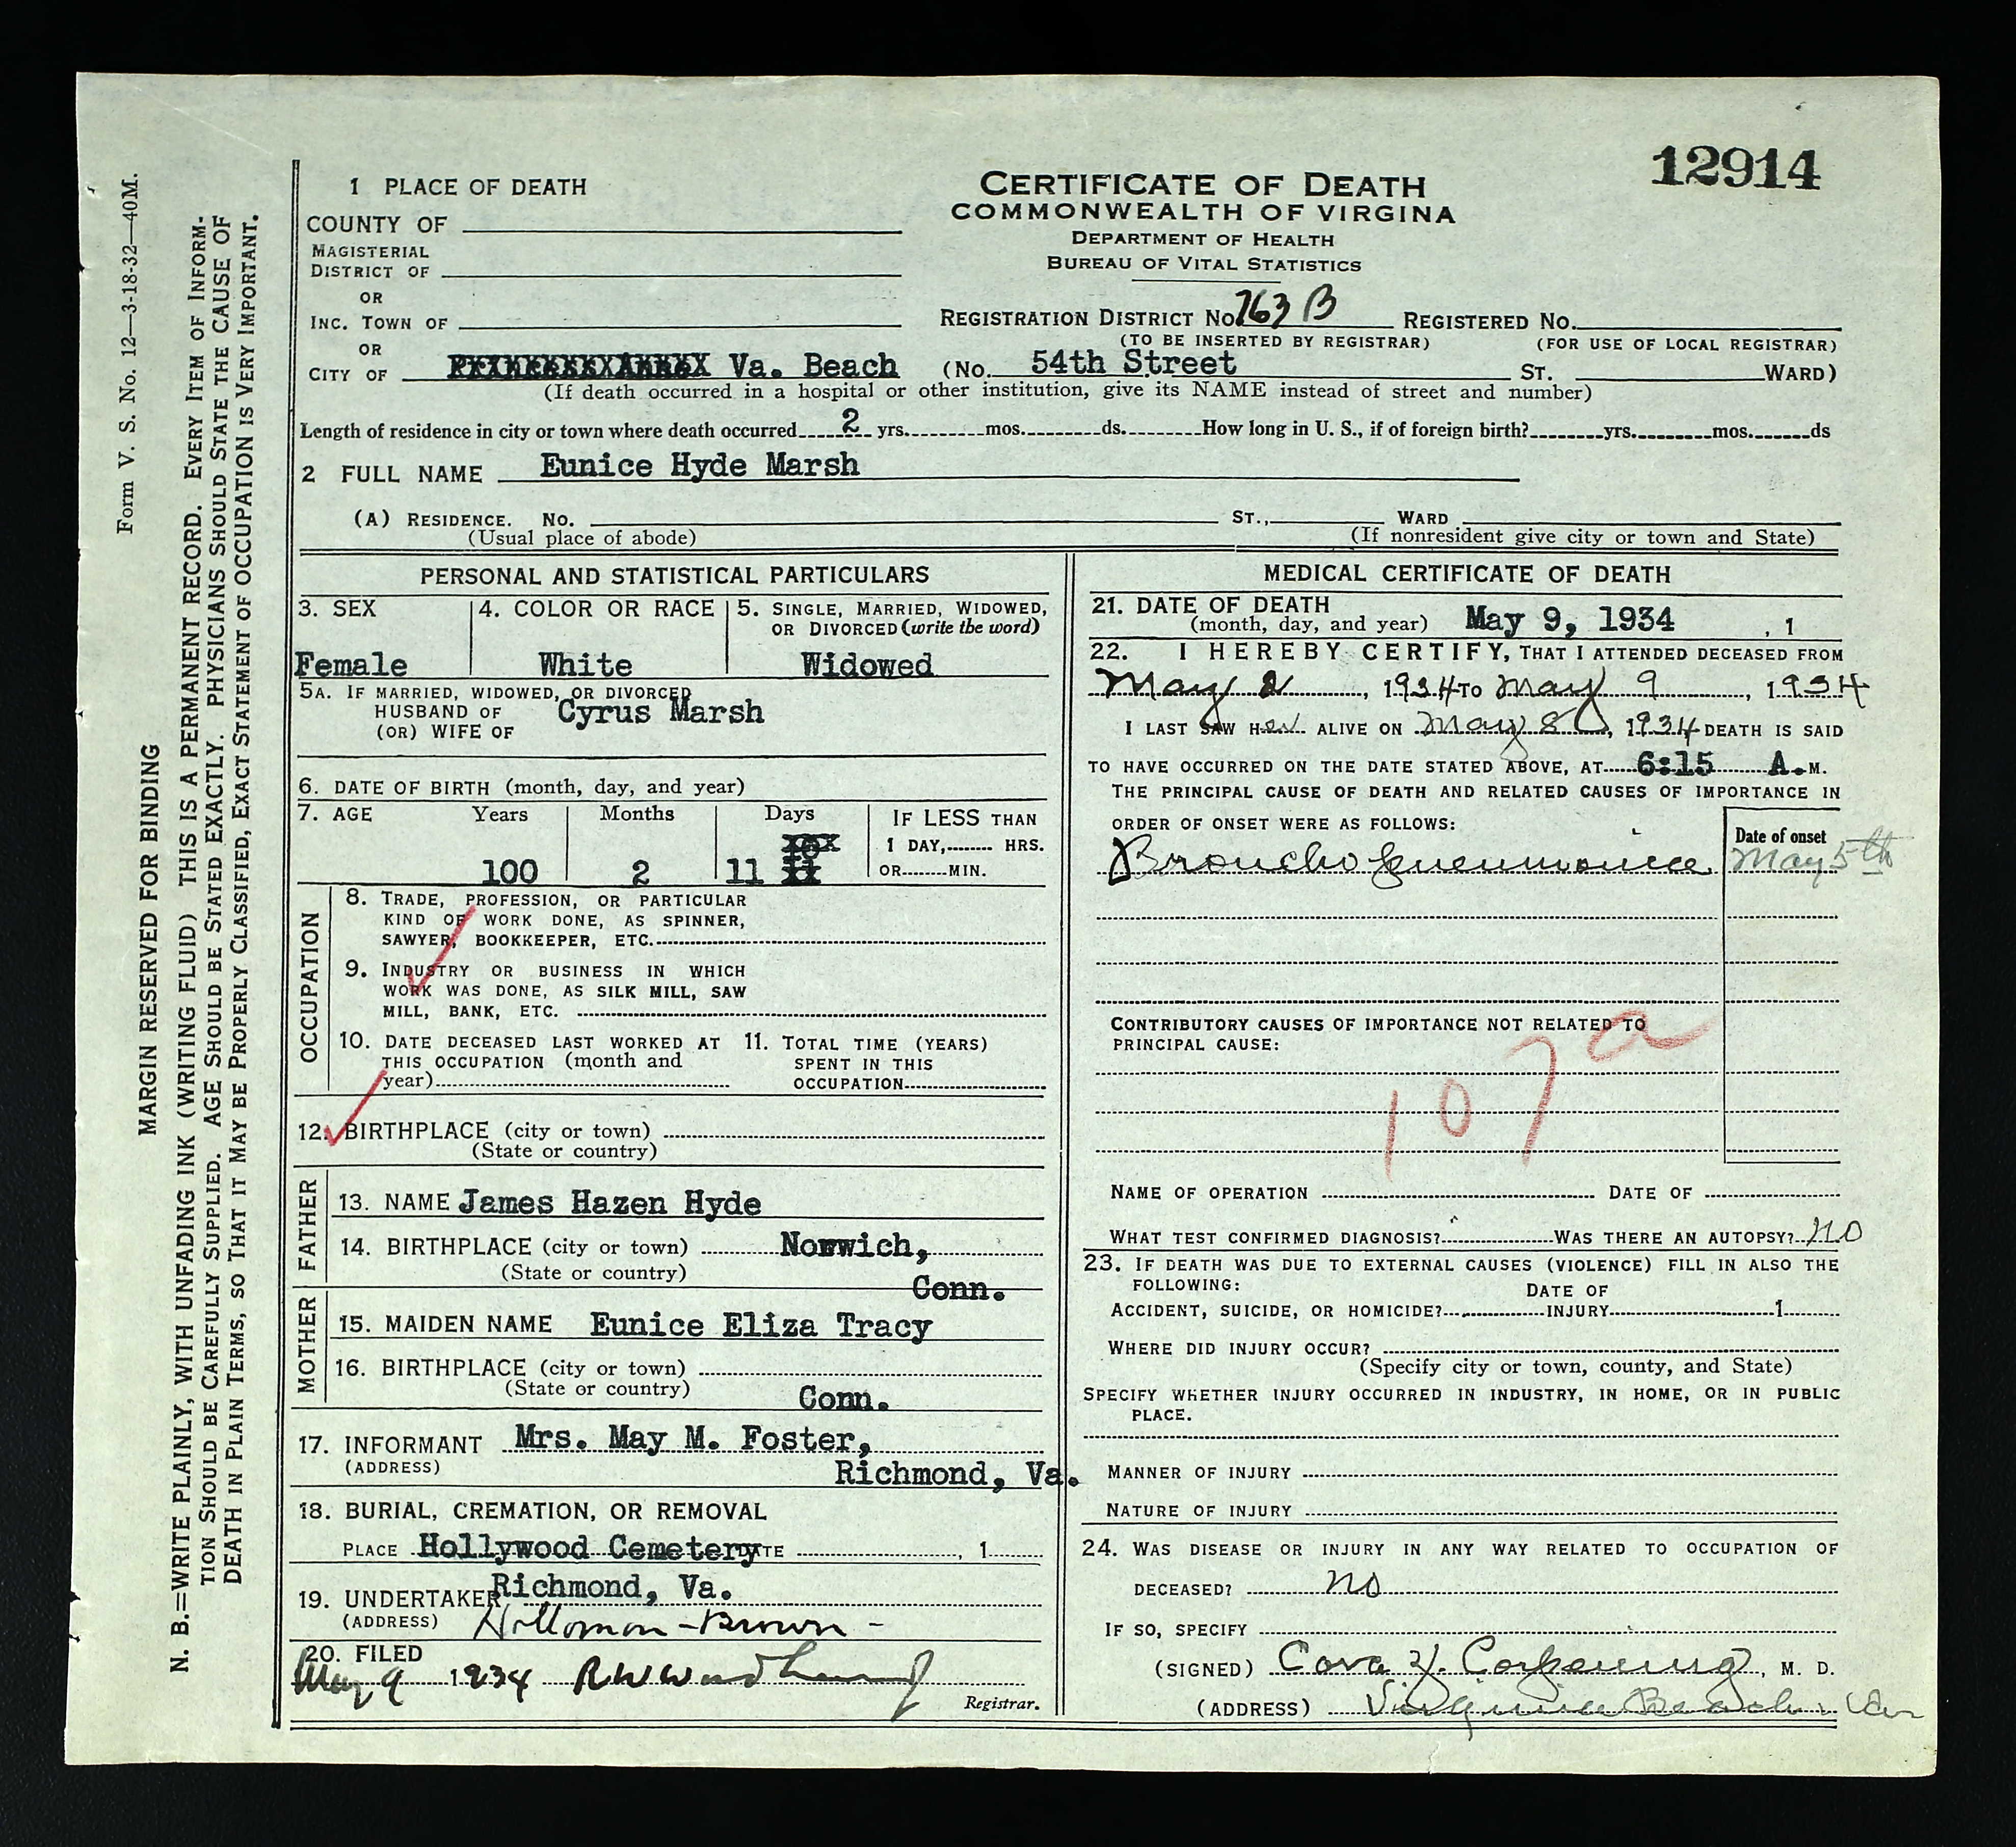 12914
Form V. S. No. 12—3-18-32—40M.
MARGIN RESERVED FOR BINDING
N. B.=WRITE PLAINLY, WITH UNFADING INK (WRITING FLUID) THIS IS A PERMANENT RECORD. EVERY ITEM OF INFORM-
TION SHOULD BE CAREFULLY SUPPLIED. AGE SHOULD BE STATED EXACTLY. PHYSICIANS SHOULD STATE THE CAUSE OF
DEATH IN PLAIN TERMS, SO THAT IT MAY BE PROPERLY CLASSIFIED, EXACT STATEMENT OF OCCUPATION IS VERY IMPORTANT.
1 PLACE OF DEATH
COUNTY OF
MAGISTERIAL
DISTRICT OF
OR
INC. TOWN OF
OR
CITY OF Va. Beach (No. 54th Street ST. WARD)
CERTIFICATE OF DEATH
COMMONWEALTH OF VIRGINA
DEPARTMENT OF HEALTH
BUREAU OF VITAL STATISTICS
REGISTRATION DISTRICT No. 763 B REGISTERED No.
(TO BE INSERTED BY REGISTRAR) (FOR USE OF LOCAL REGISTRAR)
(If death occurred in a hospital or other institution, give its NAME instead of street and number)
Length of residence in city or town where death occurred 2 yrs. mos. ds. How long in U. S., if of foreign birth? yrs. mos. ds
2 FULL NAME Eunice Hyde Marsh
(A) RESIDENCE. No. ST., WARD
(Usual place of abode) (If nonresident give city or town and State)
PERSONAL AND STATISTICAL PARTICULARS
3. SEX 4. COLOR OR RACE 5. SINGLE, MARRIED, WIDOWED,
OR DIVORCED (write the word)
Female White Widowed
5A. IF MARRIED, WIDOWED, OR DIVORCED
HUSBAND OF Cyrus Marsh
(OR) WIFE OF
6. DATE OF BIRTH (month, day, and year)
7. AGE Years Months Days IF LESS THAN
1 DAY, HRS.
100 2 11 OR MIN.
OCCUPATION
8. TRADE, PROFESSION, OR PARTICULAR
KIND OF WORK DONE, AS SPINNER,
SAWYER, BOOKKEEPER, ETC.
9. INDUSTRY OR BUSINESS IN WHICH
WORK WAS DONE, AS SILK MILL, SAW
MILL, BANK, ETC.
10. DATE DECEASED LAST WORKED AT 11. TOTAL TIME (YEARS)
THIS OCCUPATION (month and SPENT IN THIS
year) OCCUPATION
12. BIRTHPLACE (city or town)
(State or country)
FATHER
13. NAME James Hazen Hyde
14. BIRTHPLACE (city or town) Norwich,
(State or country)
Conn.
MOTHER
15. MAIDEN NAME Eunice Eliza Tracy
16. BIRTHPLACE (city or town)
(State or country)
Conn.
17. INFORMANT Mrs. May M. Foster,
(ADDRESS) Richmond, Va.
18. BURIAL, CREMATION, OR REMOVAL
PLACE Hollywood Cemetery DATE , 1
Richmond, Va.
19. UNDERTAKER
(ADDRESS) Holloman-Brown-
20. FILED
May 9 1934 R W Woodhouse
Registrar.
MEDICAL CERTIFICATE OF DEATH
21. DATE OF DEATH
(month, day, and year) May 9, 1934 , 1
22. I HEREBY CERTIFY, THAT I ATTENDED DECEASED FROM
May 2, 1934 TO May 9, 1934
I LAST SAW Her ALIVE ON May 8, 1934 DEATH IS SAID
TO HAVE OCCURRED ON THE DATE STATED ABOVE, AT 6:15 A.M.
THE PRINCIPAL CAUSE OF DEATH AND RELATED CAUSES OF IMPORTANCE IN
ORDER OF ONSET WERE AS FOLLOWS: Date of onset
Broncho pneumonia May 5th
CONTRIBUTORY CAUSES OF IMPORTANCE NOT RELATED TO
PRINCIPAL CAUSE:
107a
NAME OF OPERATION DATE OF
WHAT TEST CONFIRMED DIAGNOSIS? WAS THERE AN AUTOPSY? no
23. IF DEATH WAS DUE TO EXTERNAL CAUSES (VIOLENCE) FILL IN ALSO THE
FOLLOWING: DATE OF
ACCIDENT, SUICIDE, OR HOMICIDE? INJURY 1
WHERE DID INJURY OCCUR?
(Specify city or town, county, and State)
SPECIFY WHETHER INJURY OCCURRED IN INDUSTRY, IN HOME, OR IN PUBLIC
PLACE.
MANNER OF INJURY
NATURE OF INJURY
24. WAS DISEASE OR INJURY IN ANY WAY RELATED TO OCCUPATION OF
DECEASED? no
IF SO, SPECIFY
(SIGNED) Cora Z. Corpening, M. D.
(ADDRESS) Virginia Beach, Va